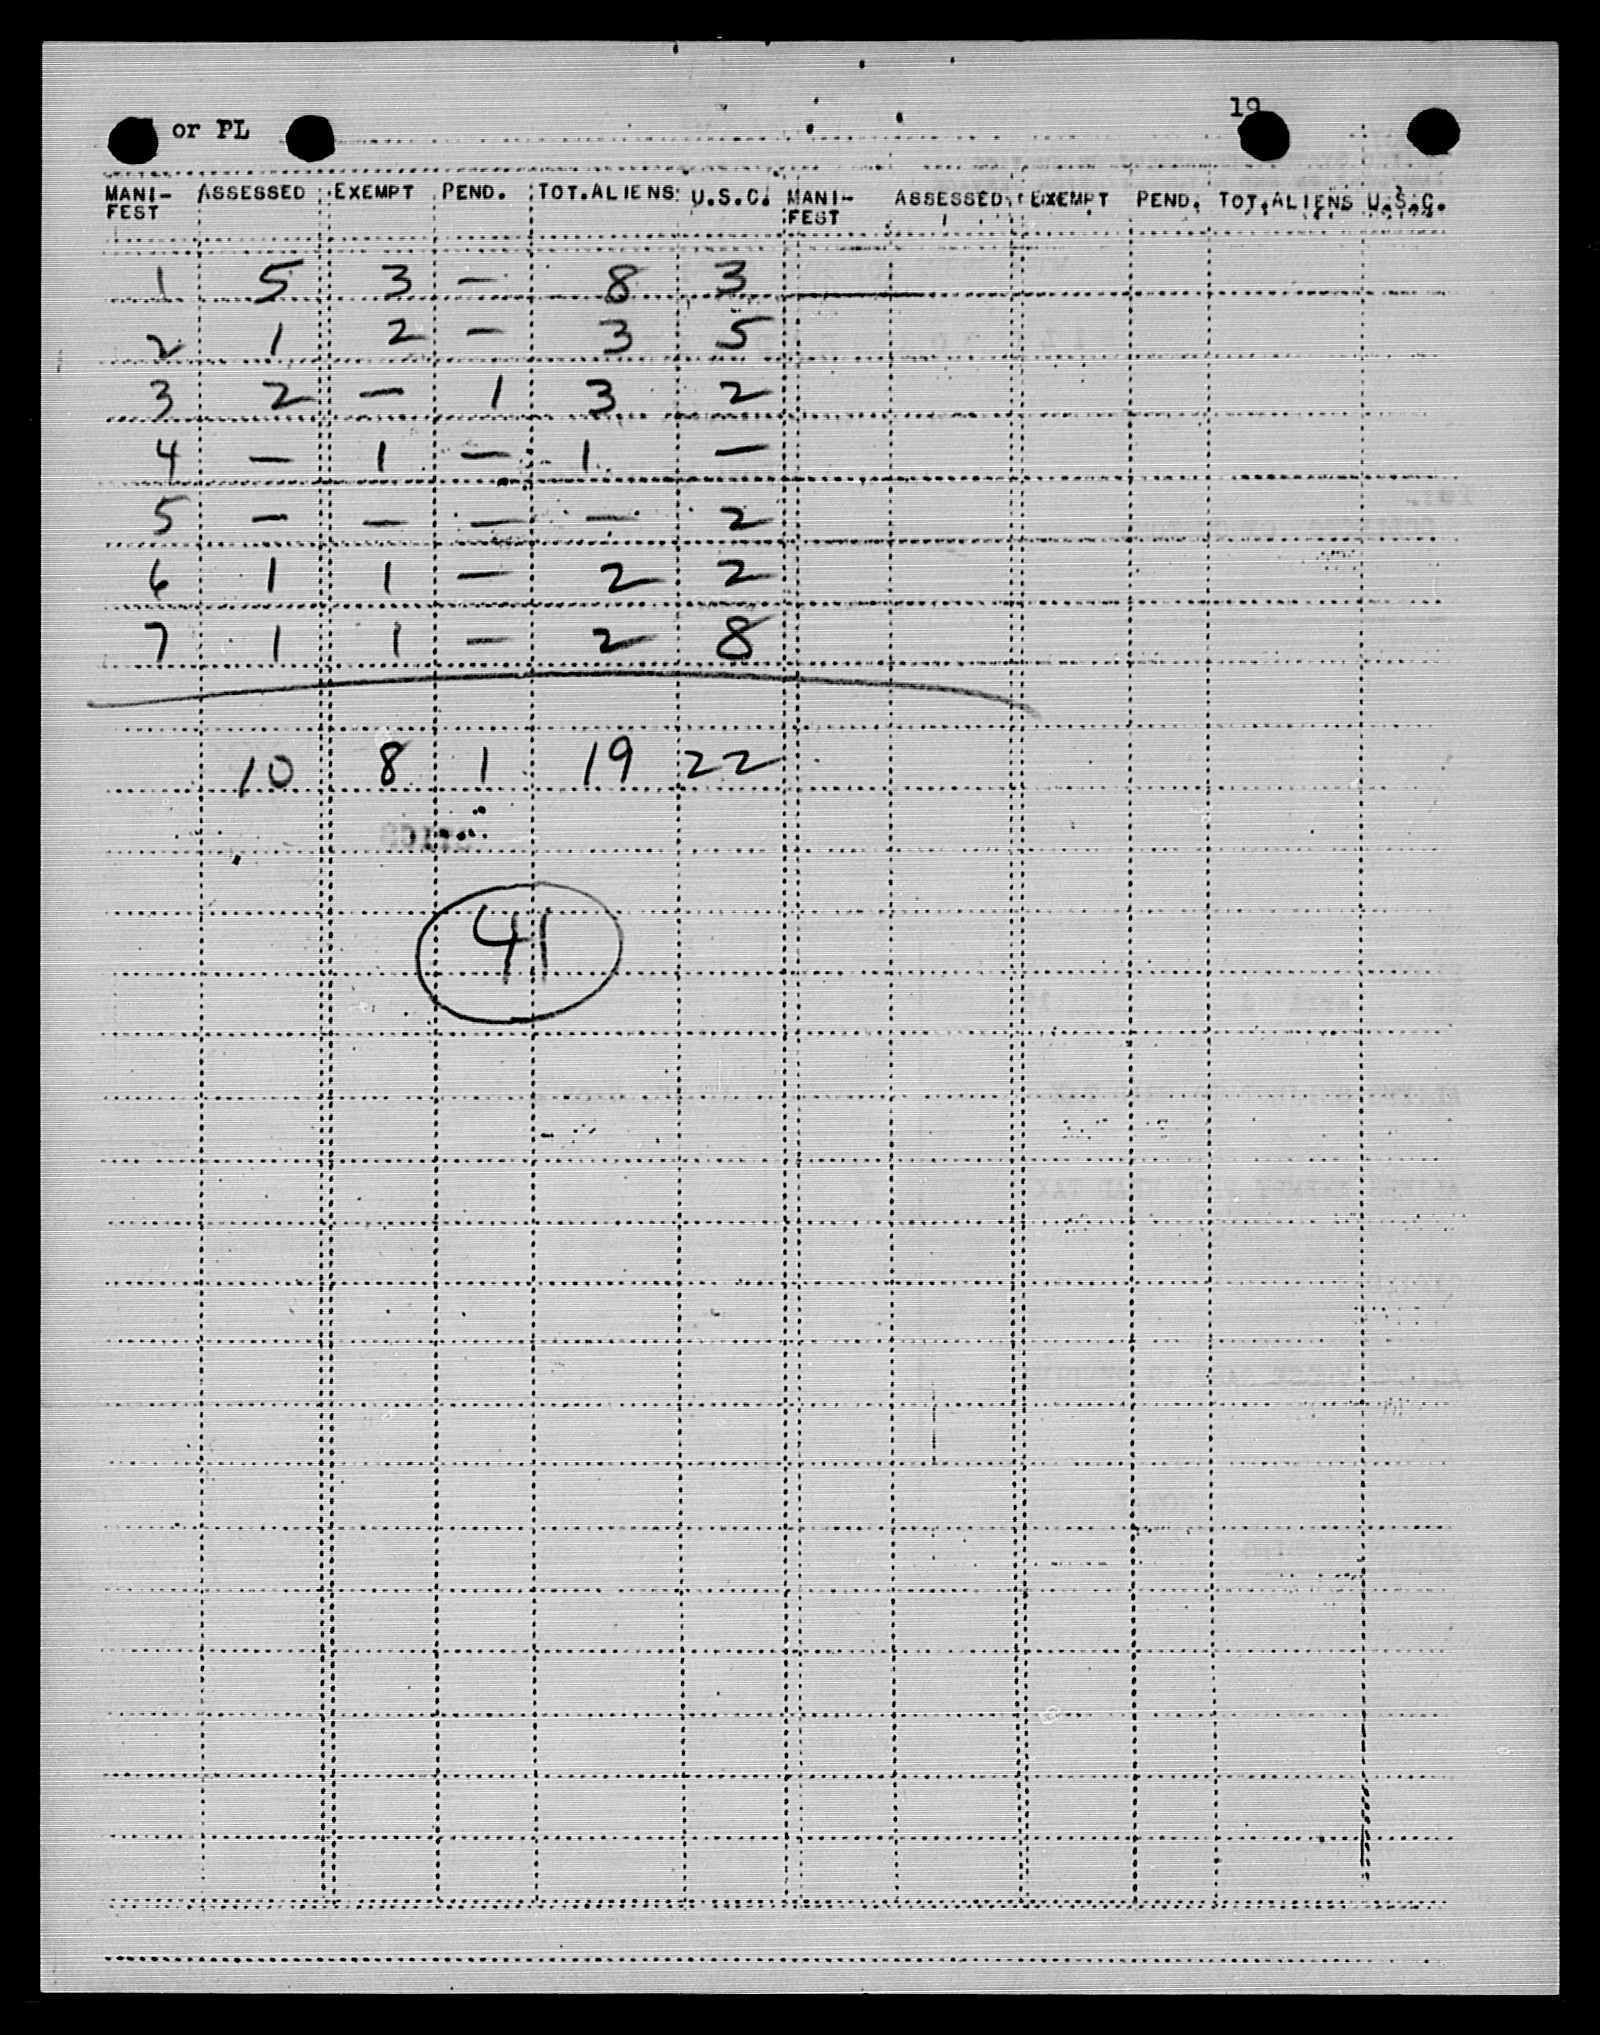 or PL 19
MANI- ASSESSED EXEMPT PEND. TOT.ALIENS U.S.C. MANI- ASSESSED EXEMPT PEND. TOT.ALIENS U.S.C.
FEST FEST
1 5 3 — 8 3
2 1 2 — 3 5
3 2 — 1 3 2
4 — 1 — 1 —
5 — — — — 2
6 1 1 — 2 2
7 1 1 — 2 8
10 8 1 19 22
41